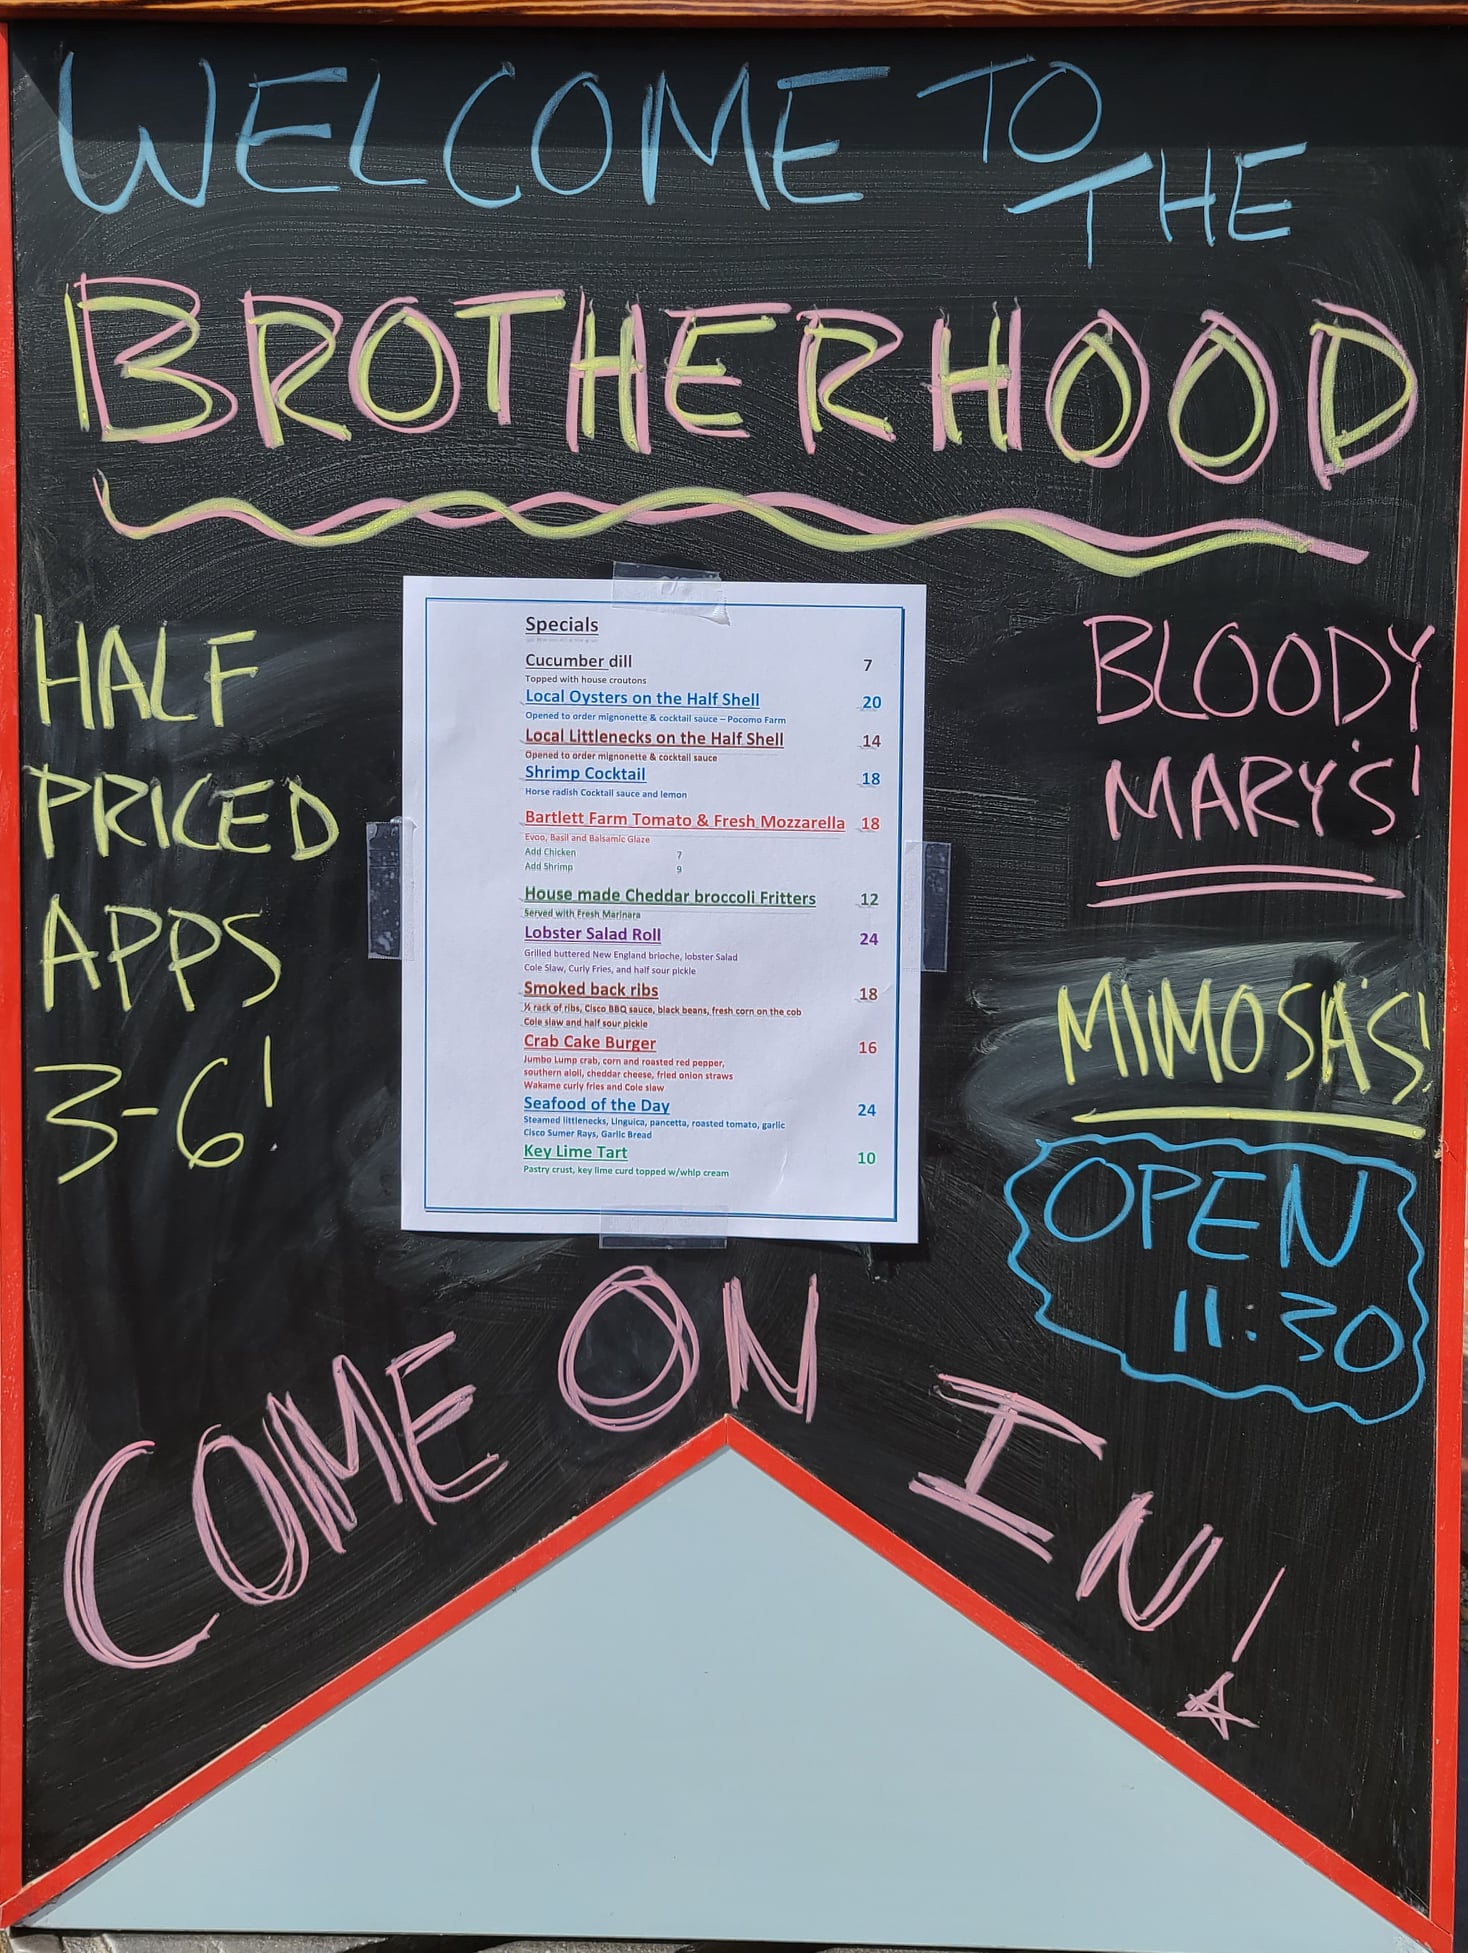 WELCOME TO
THE
BROTHERHOOD
HALF
PRICED
APPS
3-6!
Specials
Cucumber dill 7
Topped with house croutons
Local Oysters on the Half Shell 20
Opened to order mignonette & cocktail sauce – Pocomo Farm
Local Littlenecks on the Half Shell 14
Opened to order mignonette & cocktail sauce
Shrimp Cocktail 18
Horse radish Cocktail sauce and lemon
Bartlett Farm Tomato & Fresh Mozzarella 18
Evoo, Basil and Balsamic Glaze
Add Chicken 7
Add Shrimp 9
House made Cheddar broccoli Fritters 12
Served with Fresh Marinara
Lobster Salad Roll 24
Grilled buttered New England brioche, lobster Salad
Cole Slaw, Curly Fries, and half sour pickle
Smoked back ribs 18
½ rack of ribs, Cisco BBQ sauce, black beans, fresh corn on the cob
Cole slaw and half sour pickle
Crab Cake Burger 16
Jumbo Lump crab, corn and roasted red pepper,
southern aioli, cheddar cheese, fried onion straws
Wakame curly fries and Cole slaw
Seafood of the Day 24
Steamed littlenecks, Linguica, pancetta, roasted tomato, garlic
Cisco Sumer Rays, Garlic Bread
Key Lime Tart 10
Pastry crust, key lime curd topped w/whip cream
BLOODY
MARY'S!
MIMOSA'S!
OPEN
11:30
COME ON IN!